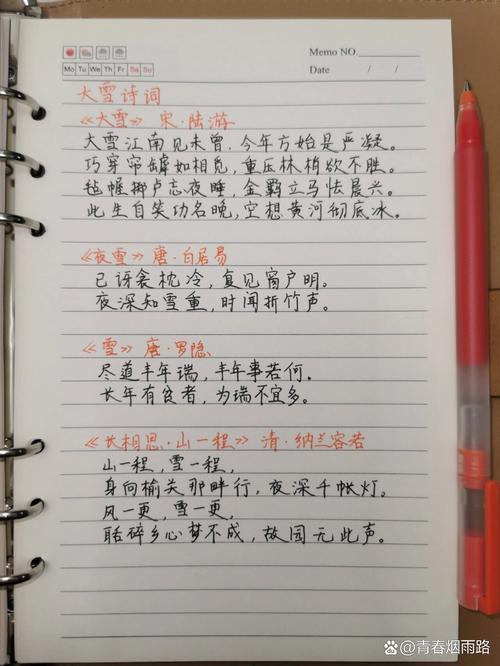 Memo NO.
Mo Tu We Th Fr Sa Su
Date / /
大雪诗词
《大雪》宋·陆游
大雪江南见未曾，今年方始是严凝。
巧穿帘罅如相觅，重压林梢欲不胜。
毡幄掷卢忘夜睡，金羁立马怯晨兴。
此生自笑功名晚，空想黄河彻底冰。
《夜雪》唐·白居易
已讶衾枕冷，复见窗户明。
夜深知雪重，时闻折竹声。
《雪》唐·罗隐
尽道丰年瑞，丰年事若何。
长安有贫者，为瑞不宜多。
《长相思·山一程》清·纳兰容若
山一程，雪一程，
身向榆关那畔行，夜深千帐灯。
风一更，雪一更，
聒碎乡心梦不成，故园无此声。
青春烟雨路